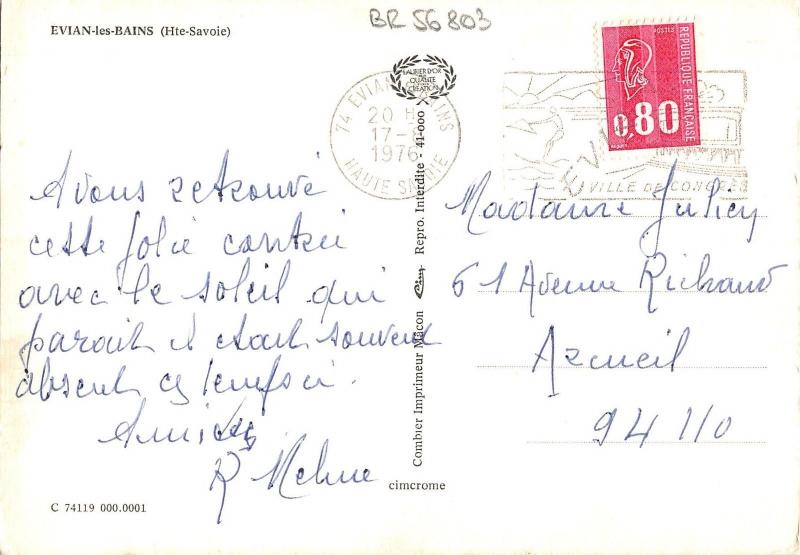 BR 56803
EVIAN-les-BAINS (Hte-Savoie)
LAURIER D'OR
QUALITÉ
CREATION
74 EVIAN BAINS
20 H
17-
1976
HAUTE SAVOIE
POSTES
REPUBLIQUE FRANÇAISE
0,80
VILLE DE CONGRÈS
Avons retrouvé
cette jolie contrée
avec le soleil qui
paraît était souvent
absent ces temps ci.
Amitiés
R
Madame
61 Avenue Richaud
Arcueil
94110
Combier Imprimeur Mâcon Cim Repro. Interdite - 41-000
cimcrome
C 74119 000.0001